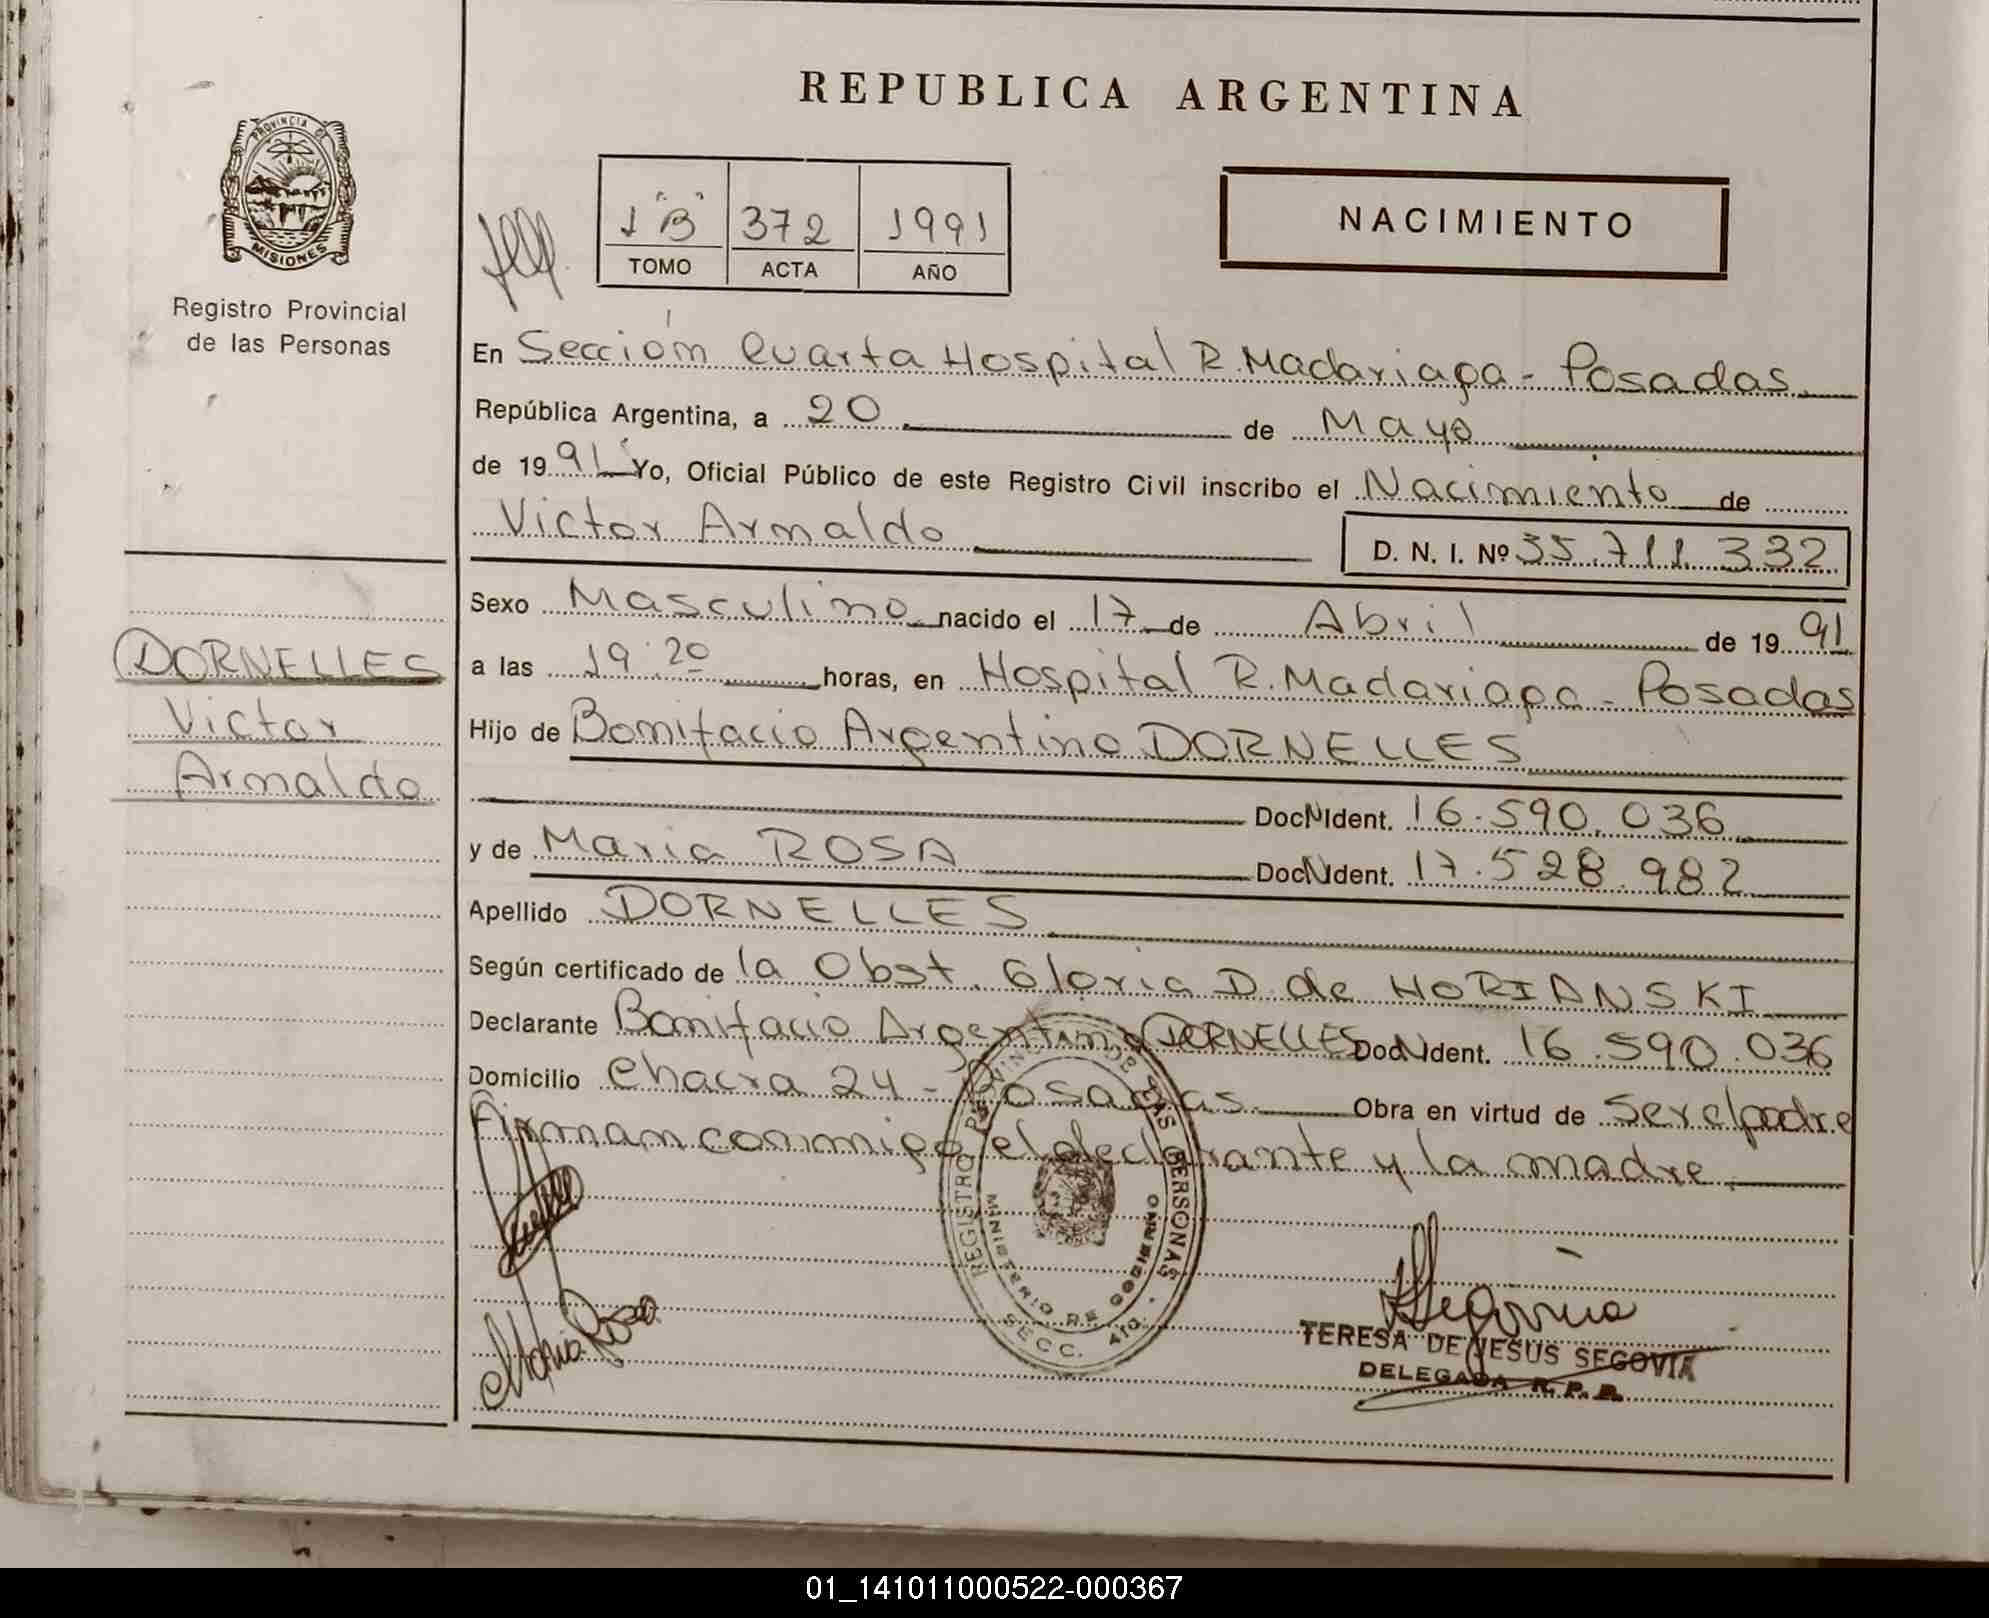 REPUBLICA ARGENTINA
PROVINCIA DE
MISIONES
Registro Provincial
de las Personas
1 "B" 372 1991
TOMO ACTA AÑO
NACIMIENTO
En Sección Cuarta Hospital R. Madariaga - Posadas
República Argentina, a 20 de Mayo
de 1991 Yo, Oficial Público de este Registro Civil inscribo el Nacimiento de
Victor Arnaldo
D. N. I. Nº 35.711.332
Sexo Masculino nacido el 17 de Abril de 1991
a las 19:20 horas, en Hospital R. Madariaga - Posadas
Hijo de Bonifacio Argentino DORNELLES
Doc N Ident. 16.590.036
y de Maria ROSA Doc N Ident. 17.528.982
Apellido DORNELLES
Según certificado de la Obst. Gloria D. de HORIANSKI
Declarante Bonifacio Argentino DORNELLES Doc N Ident. 16.590.036
Domicilio Chacra 24 - Posadas Obra en virtud de ser el padre
Firman conmigo el declarante y la madre
DORNELLES
Victor
Arnaldo
REGISTRO PROVINCIAL DE LAS PERSONAS
MINISTERIO DE GOBIERNO
SECC. 4ta.
Maria Rosa
TSegovia
TERESA DE JESUS SEGOVIA
DELEGADA R. P. P.
01_141011000522-000367